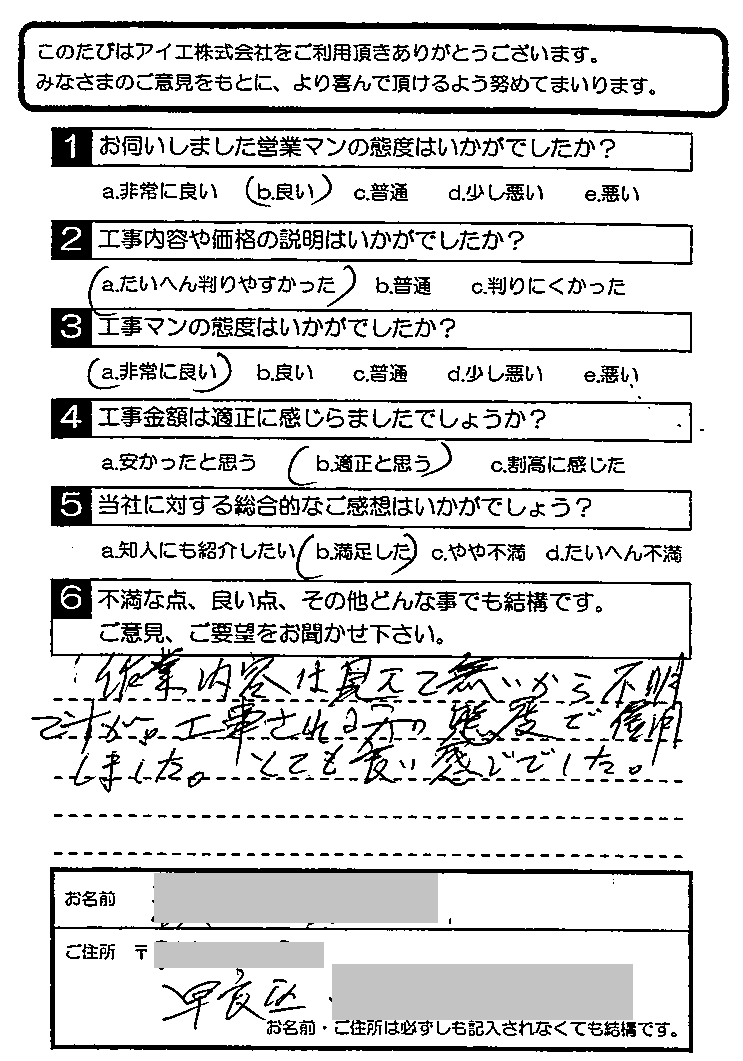 このたびはアイエ株式会社をご利用頂きありがとうございます。
みなさまのご意見をもとに、より喜んで頂けるよう努めてまいります。
1 お伺いしました営業マンの態度はいかがでしたか?
a.非常に良い b.良い c.普通 d.少し悪い e.悪い
2 工事内容や価格の説明はいかがでしたか?
a.たいへん判りやすかった b.普通 c.判りにくかった
3 工事マンの態度はいかがでしたか?
a.非常に良い b.良い c.普通 d.少し悪い e.悪い
4 工事金額は適正に感じらましたでしょうか?
a.安かったと思う b.適正と思う c.割高に感じた
5 当社に対する総合的なご感想はいかがでしょう?
a.知人にも紹介したい b.満足した c.やや不満 d.たいへん不満
6 不満な点、良い点、その他どんな事でも結構です。
ご意見、ご要望をお聞かせ下さい。
作業内容は見えて無いから不明
ですが。工事される方の態度で信用
しました。とても良い感じでした。
お名前
ご住所 〒
早良区
お名前・ご住所は必ずしも記入されなくても結構です。